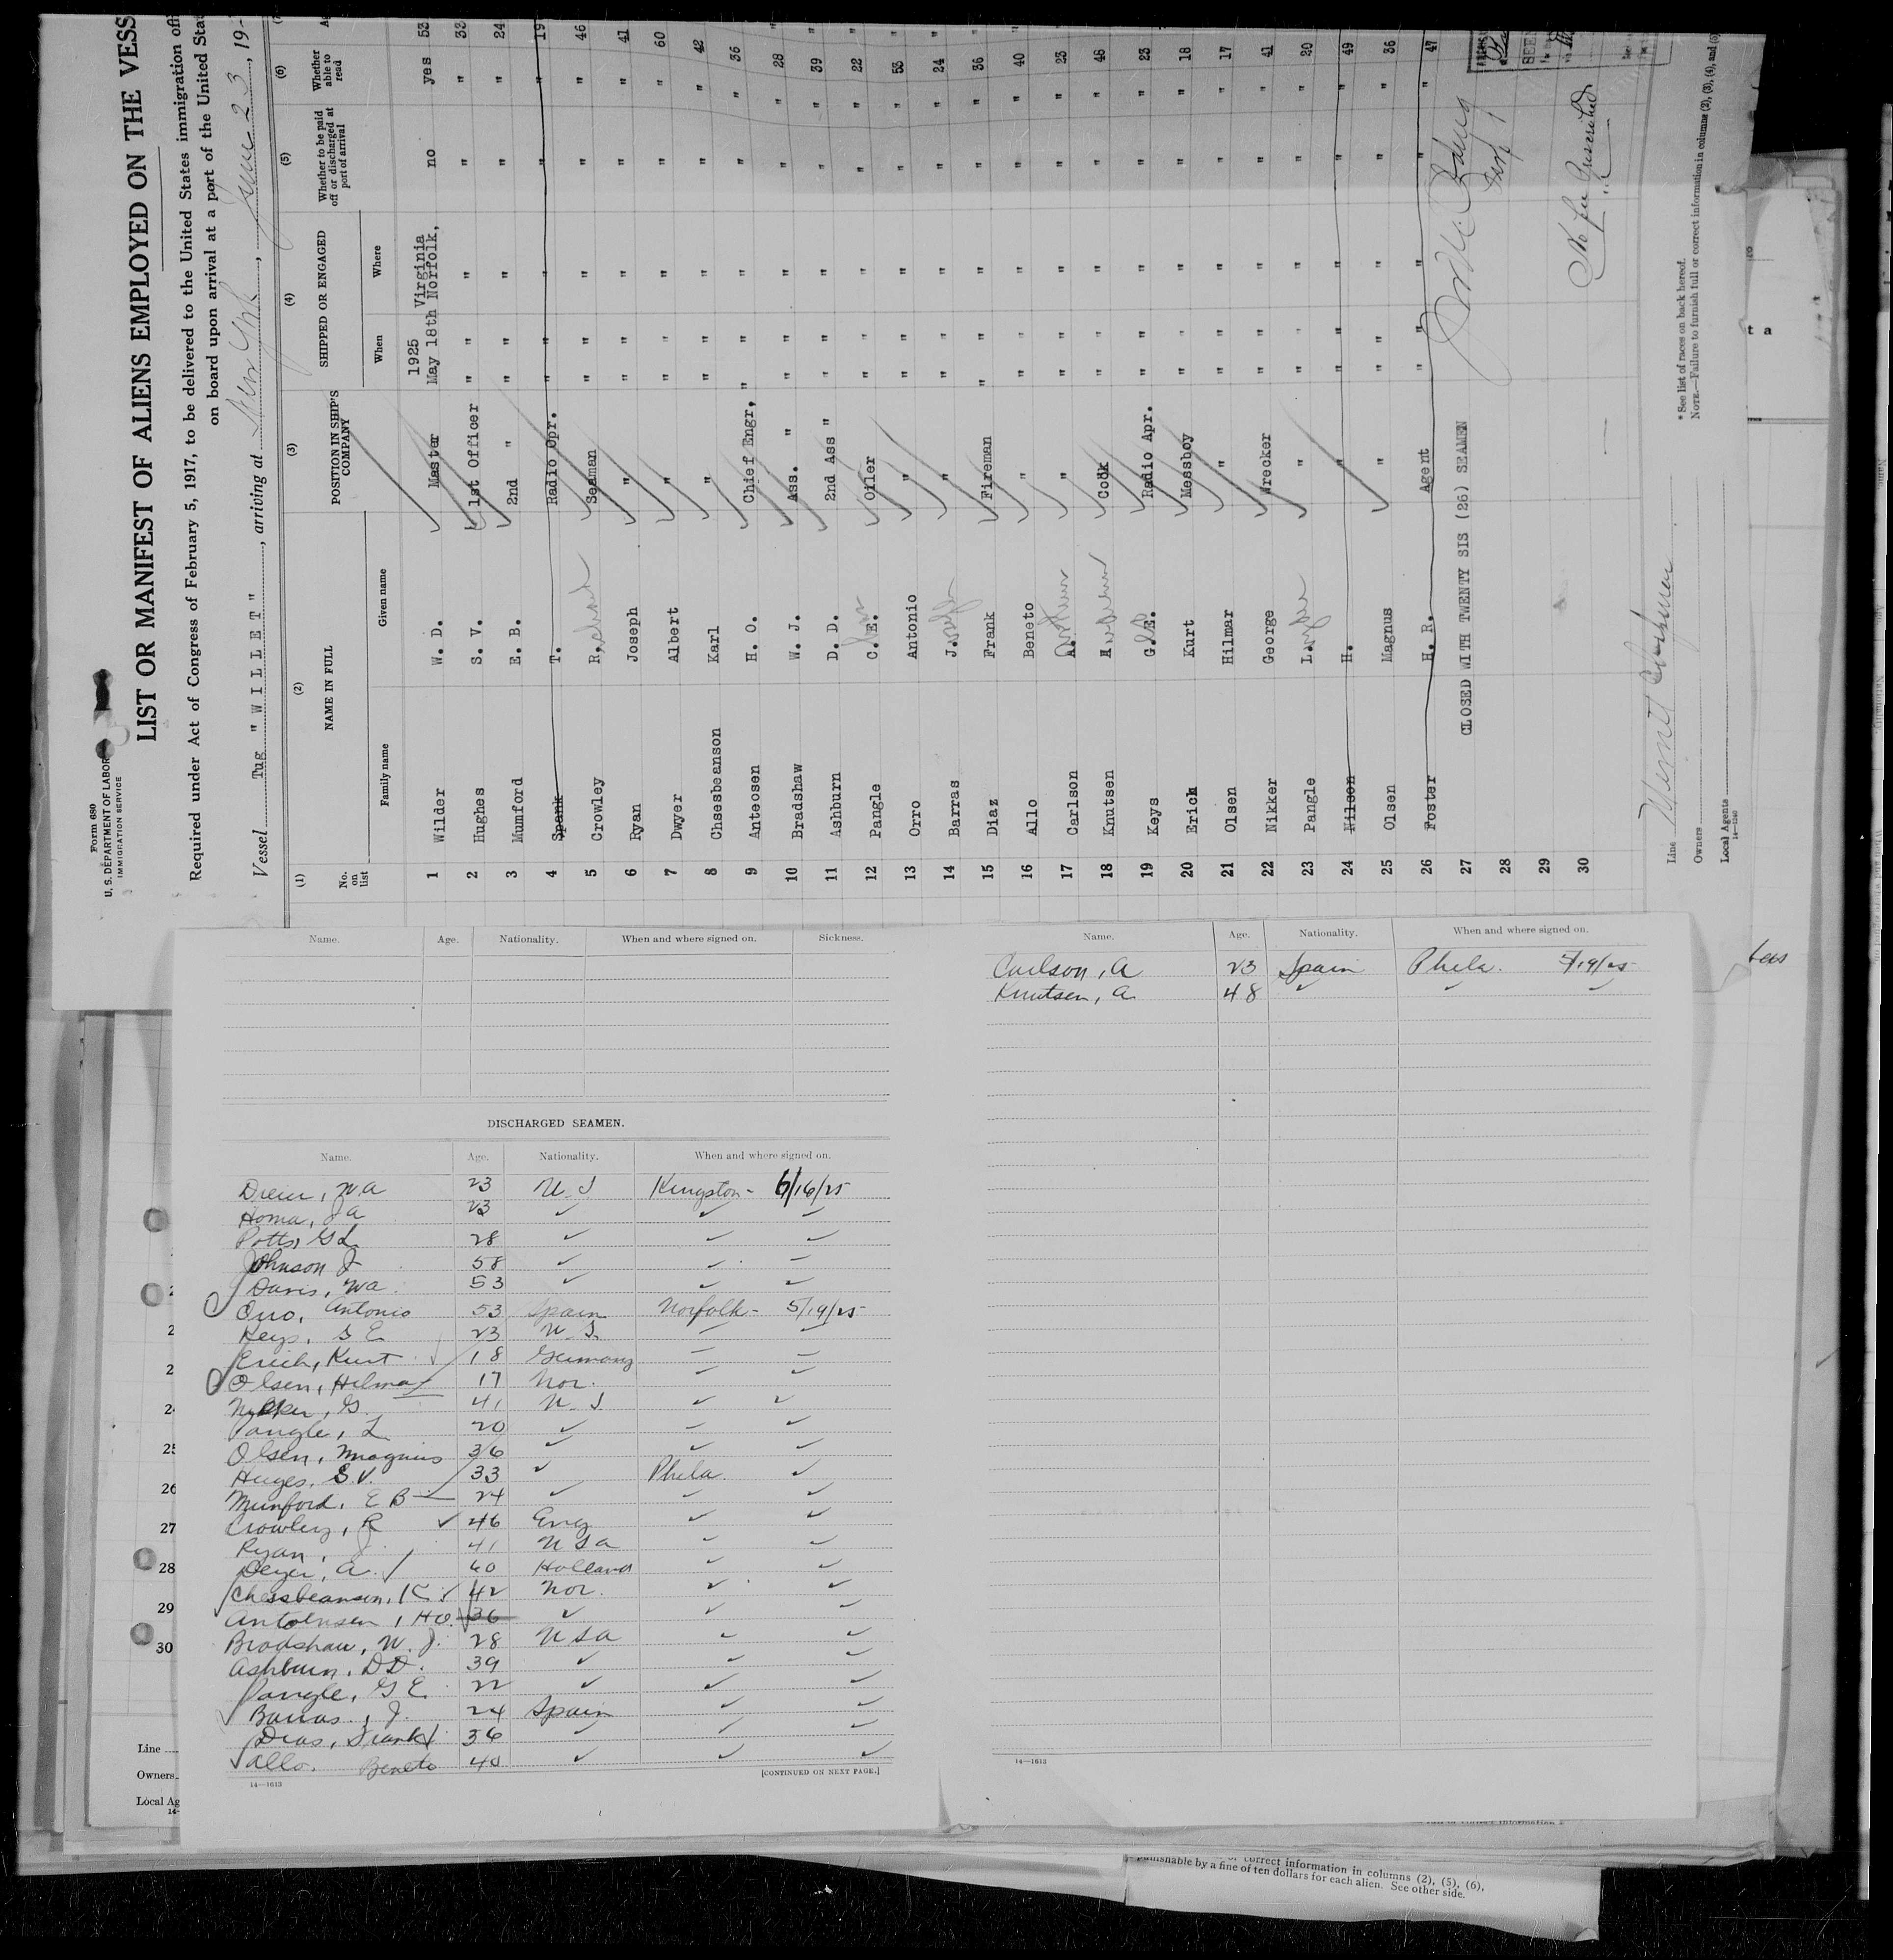 Form 680
U. S. DEPARTMENT OF LABOR
IMMIGRATION SERVICE
LIST OR MANIFEST OF ALIENS EMPLOYED ON THE VESS
Required under Act of Congress of February 5, 1917, to be delivered to the United States immigration offi
on board upon arrival at a port of the United Stat
Vessel Tug " W I L L E T ", arriving at New York, June 23, 19-
(1) (2) (3) (4) (5) (6)
No. on list NAME IN FULL POSITION IN SHIP'S COMPANY SHIPPED OR ENGAGED Whether to be paid off or discharged at port of arrival Whether able to read
Family name Given name When Where
1925 Virginia
1 Wilder W. D. Master May 18th Norfolk, no yes 53
2 Hughes S. V. 1st Officer " " " " " 33
3 Mumford E. B. 2nd " " " " " " 24
4 Spank T. Radio Opr. " " " " " 19
5 Crowley R. Seaman " " " " " 46
6 Ryan Joseph " " " " " " 41
7 Dwyer Albert " " " " " " 60
8 Chsesbeanson Karl " " " " " " 42
9 Anteosen H. O. Chief Engr, " " " " " 36
10 Bradshaw W. J. Ass. " " " " " " 28
11 Ashburn D. D. 2nd Ass " " " " " " 39
12 Pangle C. E. Oiler " " " " " 22
13 Orro Antonio " " " " " " 53
14 Barras J. Joseph " " " " " " 24
15 Diaz Frank Fireman " " " " " 36
16 Allo Beneto " " " " " " 40
17 Carlson A. " " " " " " 23
18 Knutsen Cook " " " " " 48
19 Keys G. E. Radio Apr. " " " " " 23
20 Erick Kurt Messboy " " " " " 18
21 Olsen Hilmar " " " " " " 17
22 Nikker George Wrecker " " " " " 41
23 Pangle L. " " " " " " 20
24 Nilson H. " " " " " " 49
25 Olsen Magnus " " " " " " 36
26 Foster H. R. Agent " " " " " 47
27 CLOSED WITH TWENTY SIS (26) SEAMEN
28
29
30
Line Merritt Chapman
Owners
Local Agents
14—1240
* See list of races on back hereof.
NOTE.—Failure to furnish full or correct information in columns (2), (3), (4), and (5)
Name. Age. Nationality. When and where signed on. Sickness.
DISCHARGED SEAMEN.
Name. Age. Nationality. When and where signed on.
Dreier, W a 23 U. S Kingston - 6/16/25
Homa, J a 23 ✓ ✓ ✓
Potts, G L 28 ✓ ✓ ✓
Johnson J 58 ✓ ✓ ✓
Davis, Wa 53 ✓ ✓ ✓
Orro, Antonio 53 Spain Norfolk - 5/19/25
Keys, G E 23 U. S.
Erich, Kurt 18 Germany
Olsen, Hilmar 17 Nor.
Nykker, G. 41 U. S ✓ ✓
Pangle, L 20 ✓ ✓ ✓
Olsen, Magnus 36 ✓ ✓ ✓
Huges, S.V. 33 ✓ Phila. ✓
Munford, E B 24 ✓ ✓ ✓
Crowley, R ✓ 46 Eng ✓ ✓
Ryan, J. 41 U S a ✓ ✓
Deyer, a. 60 Holland ✓ ✓
Chessbeansen, K. ✓ 42 Nor. ✓ ✓
Antoensen, HO. 36 ✓ ✓ ✓
Bradshaw, W. J. 28 U S a ✓ ✓
Ashburn, DD. 39 ✓ ✓ ✓
Pangle, G E. 22 ✓ ✓ ✓
Barras, J. 24 Spain ✓ ✓
Dias, Frank 36 ✓ ✓ ✓
Allo, Beneto 40 ✓ ✓ ✓
14—1613
[CONTINUED ON NEXT PAGE.]
Name. Age. Nationality. When and where signed on.
Carlson, A 23 Spain Phila. 5/19/25
Knutsen, a. 48 ✓ ✓ ✓
14—1613
25
26
27
28
29
30
Line
Owners
Local Ag
or correct information in columns (2), (5), (6),
punishable by a fine of ten dollars for each alien. See other side.